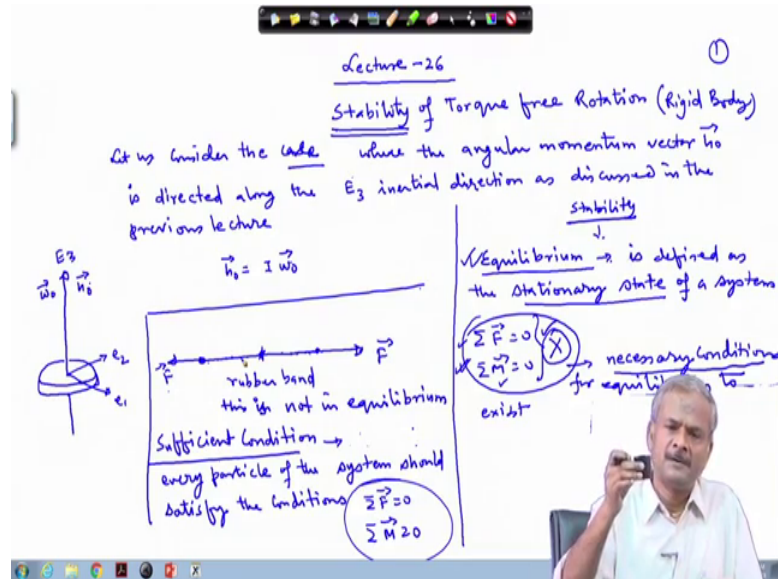 ①
Lecture-26
Stability of Torque free Rotation (Rigid Body)
Let us consider the case where the angular momentum vector h0
is directed along the E3 inertial direction as discussed in the
previous lecture
E3
ω0 h0
e2
e1
h0 = I ω0
F F
rubber band
this is not in equilibrium
Sufficient Condition →
every particle of the system should
satisfy the conditions
ΣF = 0
ΣM = 0
stability
↓
Equilibrium → is defined as
the stationary state of a system
ΣF = 0
ΣM = 0
X
→ necessary conditions
for equilibrium to
exist